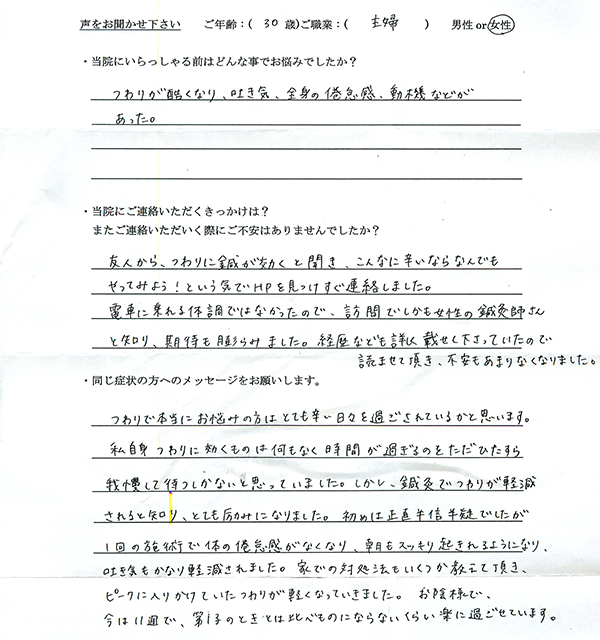 声をお聞かせ下さい ご年齢：( 30 歳)ご職業：( 主婦 ) 男性 or 女性
・当院にいらっしゃる前はどんな事でお悩みでしたか？
つわりが酷くなり、吐き気、全身の倦怠感、動機などが
あった。
・当院にご連絡いただくきっかけは？
またご連絡いただいく際にご不安はありませんでしたか？
友人から、つわりに鍼が効くと聞き、こんなに辛いならなんでも
やってみよう！という気でHPを見つけすぐ連絡しました。
電車に乗れる体調ではなかったので、訪問でしかも女性の鍼灸師さん
と知り、期待も膨らみました。経歴なども詳しく載せて下さっていたので
読ませて頂き、不安もあまりなくなりました。
・同じ症状の方へのメッセージをお願いします。
つわりで本当にお悩みの方はとても辛い日々を過ごされているかと思います。
私自身つわりに効くものは何もなく時間が過ぎるのをただひたすら
我慢して待つしかないと思っていました。しかし、鍼灸でつわりが軽減
されると知り、とても励みになりました。初めは正直半信半疑でしたが
1回の施術で体の倦怠感がなくなり、朝もスッキリ起きれるようになり、
吐き気もかなり軽減されました。家での対処法もいくつか教えて頂き、
ピークに入りかけていたつわりが軽くなっていきました。お陰様で、
今は11週で、第1子のときとは比べものにならないくらい楽に過ごせています。